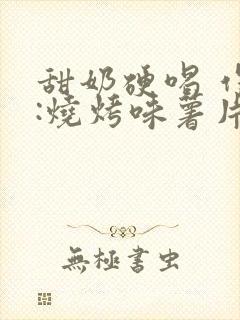 甜奶硬唱
:燒烤味薯片
無極書虫